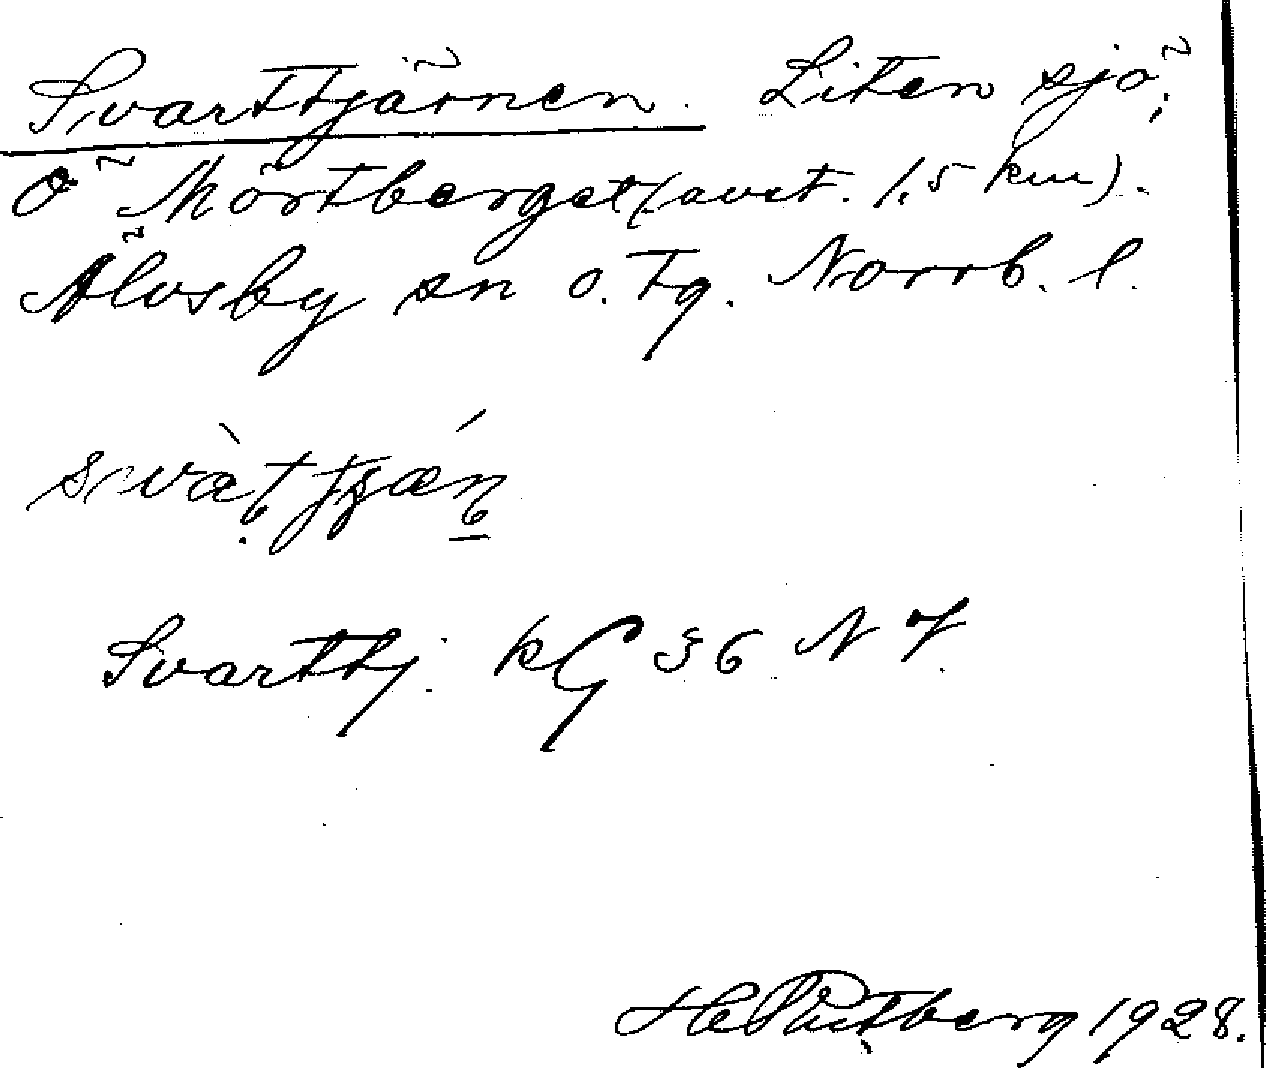 Svarttjärnen. Liten sjö,
Ö Mörtberget (avst. 1,5 km).
Älvsby sn o. tg. Norrb. l.
Svarttj. kG 36 NV.
1928.